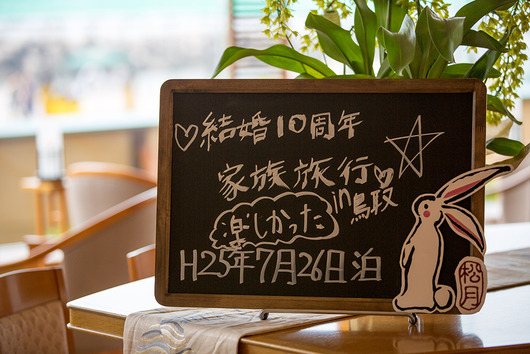 ♡結婚10周年☆
家族旅行♡
楽しかった in鳥取
H25年7月26日泊
松月